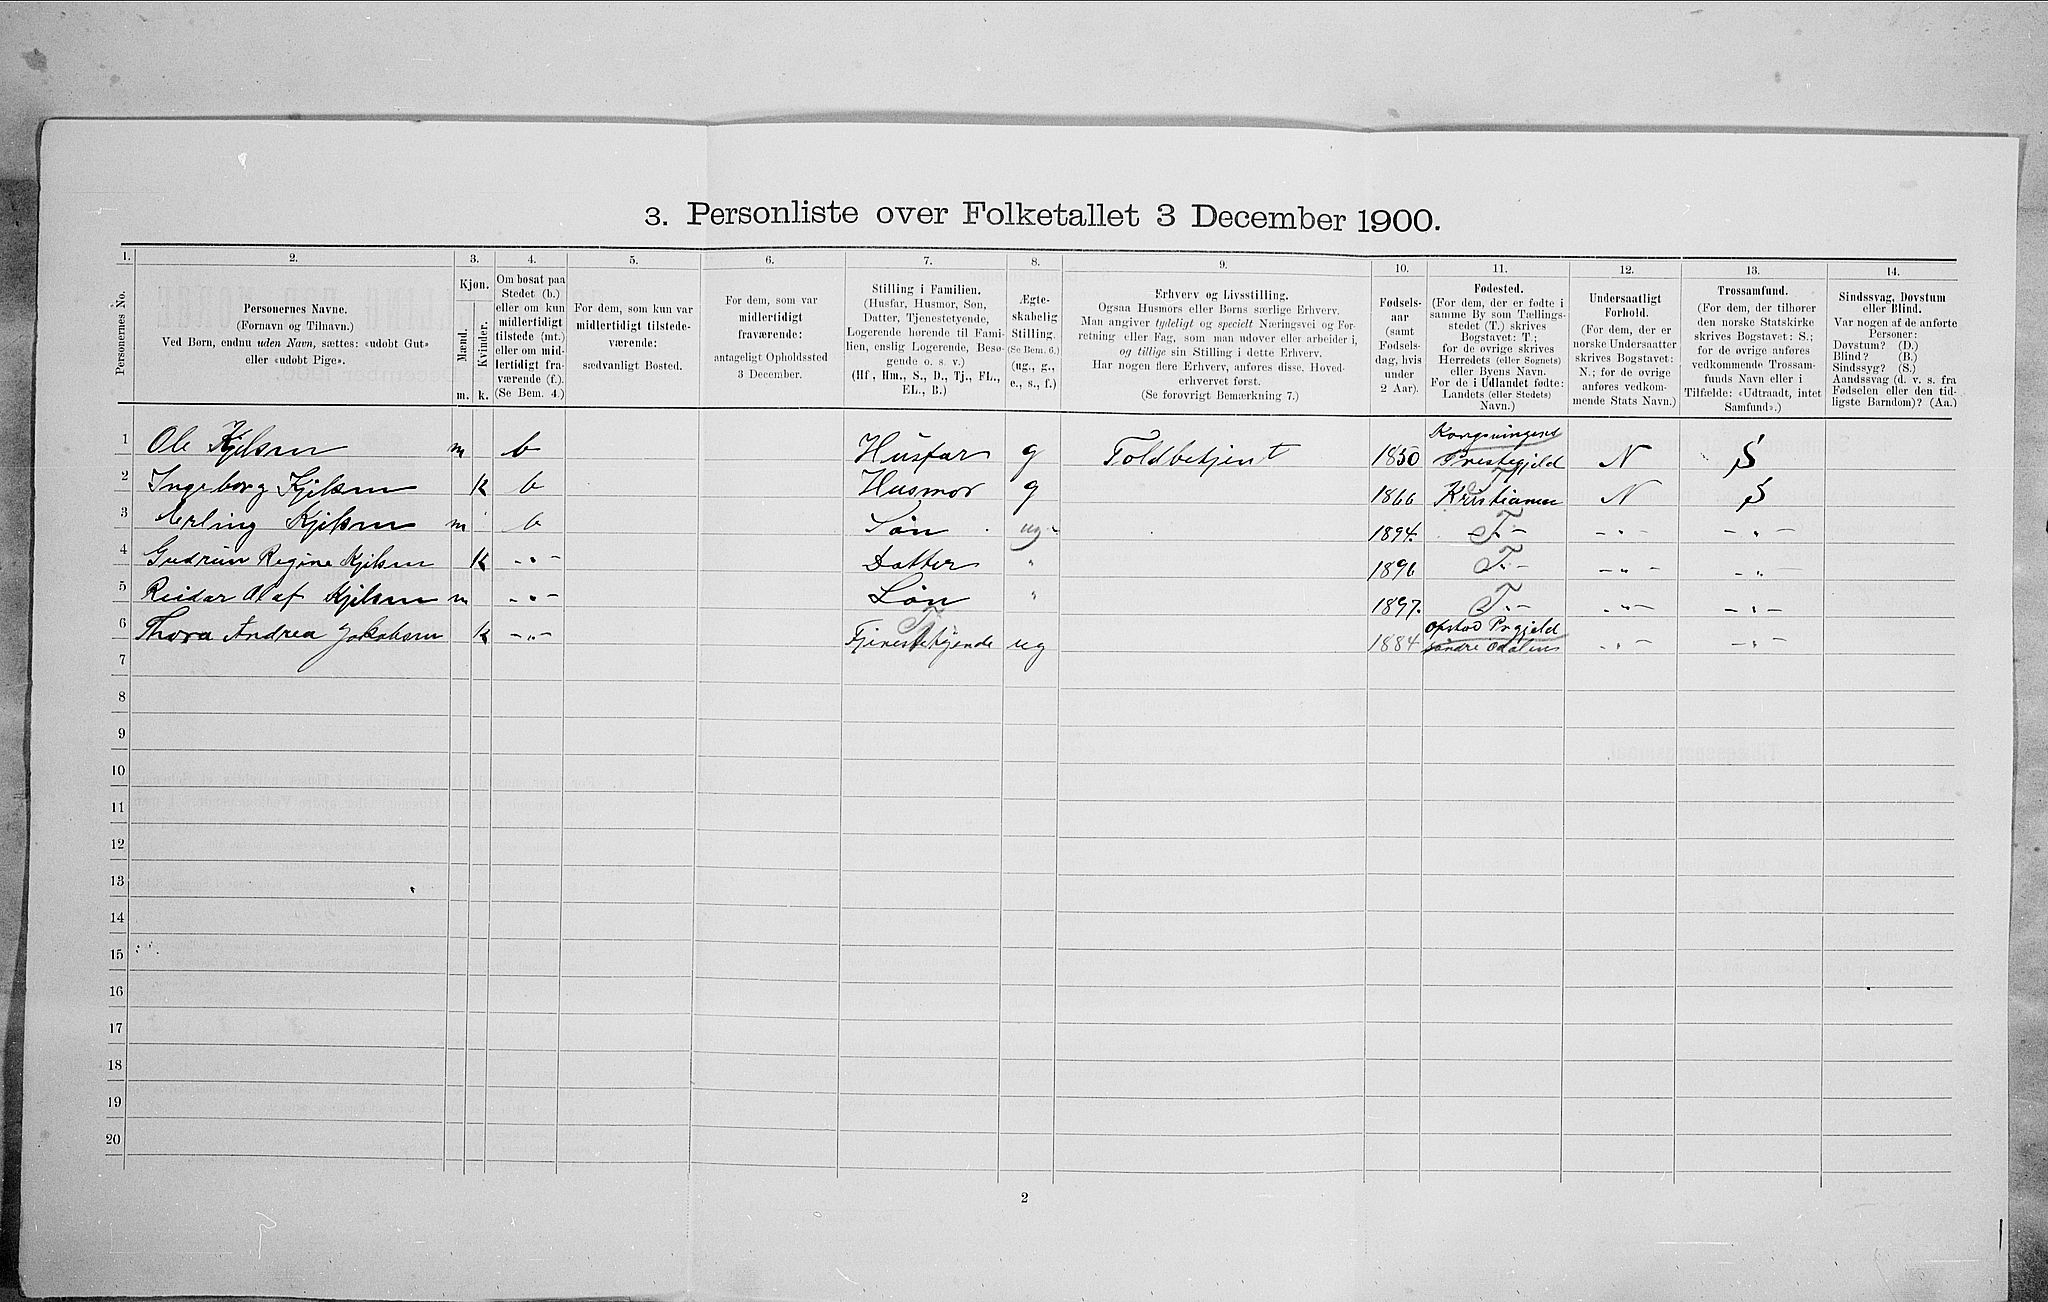 3. Personliste over Folketallet 3 December 1900.
1. 2. 3. 4. 5. 6. 7. 8. 9. 10. 11. 12. 13. 14.
Personernes No.
Personernes Navne.
(Fornavn og Tilnavn.)
Ved Børn, endnu uden Navn, sættes: «udøbt Gut»
eller «udøbt Pige».
Kjøn.
Mænd.
Kvinder.
m. k.
Om bosat paa
Stedet (b.)
eller om kun
midlertidigt
tilstede (mt.)
eller om mid-
lertidigt fra-
værende (f.).
(Se Bem. 4.)
For dem, som kun var
midlertidigt tilstede-
værende:
sædvanligt Bosted.
For dem, som var
midlertidigt
fraværende:
antageligt Opholdssted
3 December.
Stilling i Familien.
(Husfar, Husmor, Søn,
Datter, Tjenestetyende,
Logerende hørende til Fami-
lien, enslig Logerende, Besø-
gende o. s. v.)
(Hf, Hm., S., D., Tj., FL.,
EL., B.)
Ægte-
skabelig
Stilling.
(Se Bem. 6.)
(ug., g.,
e., s., f.)
Erhverv og Livsstilling.
Ogsaa Husmors eller Børns særlige Erhverv.
Man angiver tydeligt og specielt Næringsvei og For-
retning eller Fag, som man udøver eller arbeider i,
og tillige sin Stilling i dette Erhverv.
Har nogen flere Erhverv, anføres disse, Hoved-
erhvervet først.
(Se forøvrigt Bemærkning 7.)
Fødsels-
aar
(samt
Fødsels-
dag, hvis
under
2 Aar).
Fødested.
(For dem, der er fødte i
samme By som Tællings-
stedet (T.) skrives
Bogstavet: T.;
for de øvrige skrives
Herredets (eller Sognets)
eller Byens Navn.
For de i Udlandet fødte:
Landets (eller Stedets)
Navn.)
Undersaatligt
Forhold.
(For dem, der er
norske Undersaatter
skrives Bogstavet:
N.; for de øvrige
anføres vedkom-
mende Stats Navn.)
Trossamfund.
(For dem, der tilhører
den norske Statskirke
skrives Bogstavet: S.;
for de øvrige anføres
vedkommende Trossam-
funds Navn eller i
Tilfælde: «Udtraadt, intet
Samfund».)
Sindssvag, Døvstum
eller Blind.
Var nogen af de anførte
Personer:
Døvstum? (D.)
Blind? (B.)
Sindssyg? (S.)
Aandssvag (d. v. s. fra
Fødselen eller den tid-
ligste Barndom)? (Aa.)
1 Ole Kjelsen m b Husfar g Toldbetjent 1850 Kongsvingens Prestegjeld N S
2 Ingeborg Kjelsen K b Husmor g 1866 Kristiania T N S
3 Erling Kjelsen m b Søn ug 1894. T - - " - - " -
4 Gudrun Regine Kjelsen K - " - Datter " 1896 T - - " - - " -
5 Reidar Olaf Kjelsen m - " - Søn " 1897. T - - " - - " -
6 Thora Andrea Jakobsen K - " - Tjenestetyende Tj ug 1884 Opstad Prgjeld søndre Odalen - " - - " -
7
8
9
10
11
12
13
14
15
16
17
18
19
20
2